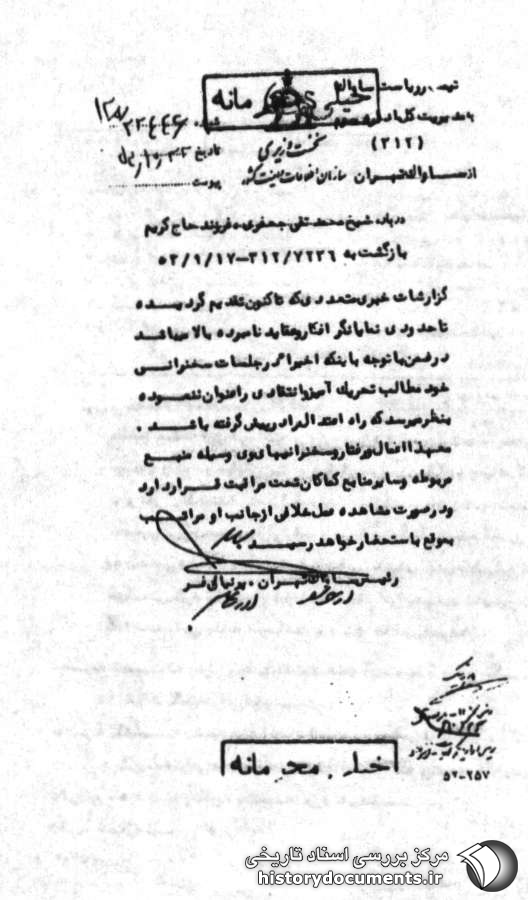 خیلی محرمانه
به: ریاست ساواک
به مدیریت کل اداره سوم
(۳۱۲)
از ساواک تهران
نخست وزیری
سازمان اطلاعات و امنیت کشور
شماره
تاریخ
پیوست
درباره شیخ محمد تقی جعفری، فرزند حاج کریم
بازگشت به ۳۱۲/۷۲۳۶-۵۳/۹/۱۷
گزارشات خبری متعددی که تاکنون تقدیم گردیده
تا حدودی نمایانگر افکار و عقاید نامبرده بالا میباشد
در ضمن با توجه باینکه اخیرا در جلسات سخنرانی
خود مطالب تحریک آمیز و انتقادی را عنوان ننموده
بنظر میرسد که راه اعتدال را در پیش گرفته باشد.
معهذا اعمال و رفتار و سخنرانیهای وی وسیله منبع
مربوطه و سایر منابع کماکان تحت مراقبت قرار دارد
و در صورت مشاهده عمل خلافی از جانب او مراتب
بموقع باستحضار خواهد رسید
رئیس ساواک تهران، پرنیان فر
خیلی محرمانه
۵۲-۲۵۷
مرکز بررسی اسناد تاریخی
historydocuments.ir